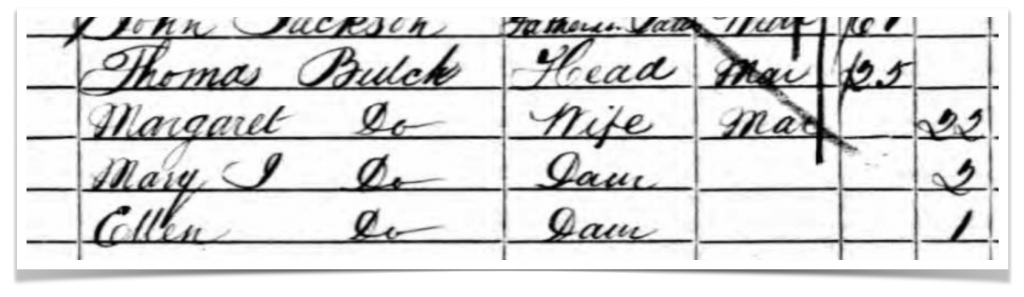 John Jackson Father in Law 61
Thomas Bulck Head Mar 25
Margaret Do Wife Mar 22
Mary I Do Daur 2
Ellen Do Daur 1